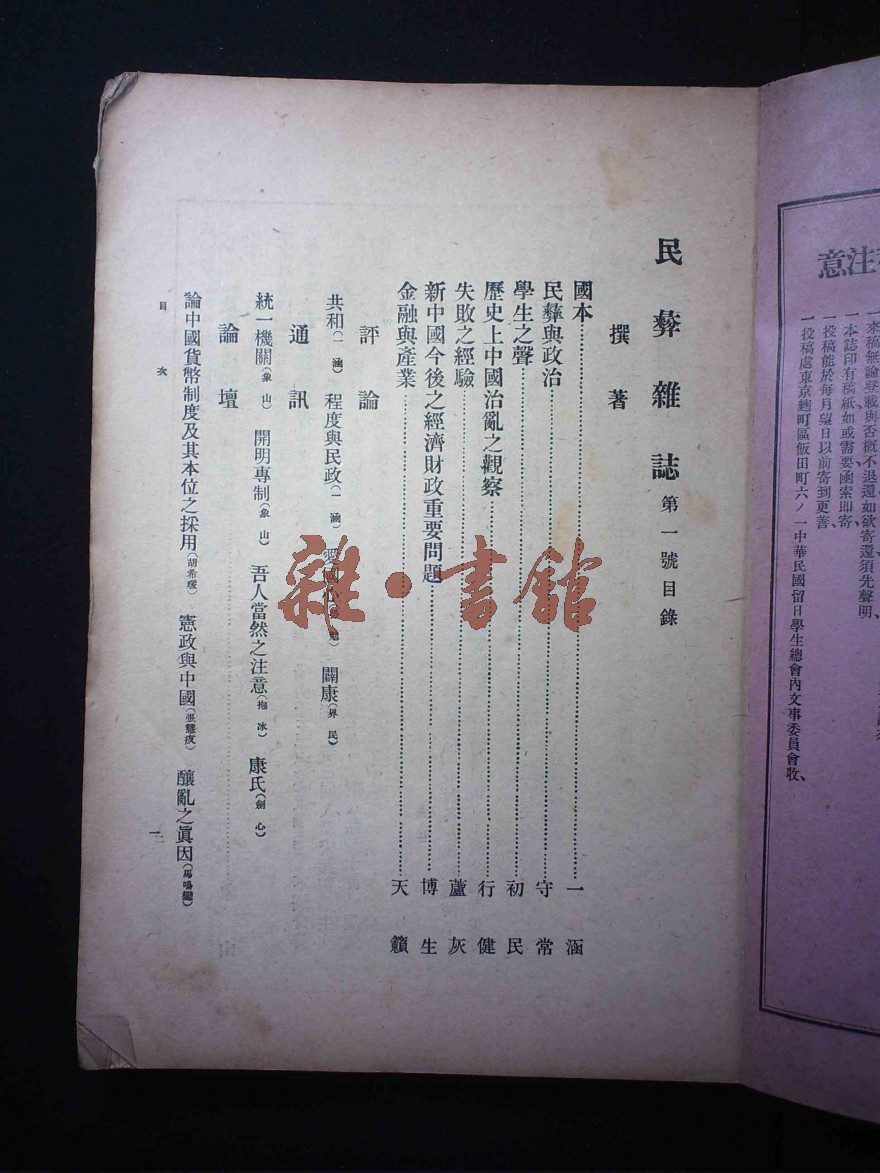 意注
一來稿無論登載與否概不退還如欲寄還須先聲明、
一本誌印有稿紙如或需要函索即寄
一投稿能於每月望日以前寄到更善
一投稿處東京麴町區飯田町六ノ一中華民國留日學生總會內文事委員會收、
民彝雜誌 第一號目錄
撰著
國本 一涵
民彝與政治 守常
學生之聲 初民
歷史上中國治亂之觀察 行健
失敗之經驗 蘆灰
新中國今後之經濟財政重要問題 博生
金融與產業 天籟
評論
共和(一涵) 程度與民政(一涵) 愛國心 闢康(界民)
通訊
統一機關(象山) 開明專制(象山) 吾人當然之注意(抱冰) 康氏(劍心)
論壇
論中國貨幣制度及其本位之採用 憲政與中國 釀亂之眞因(馬鳴鸞)
目次
一
雜·書館